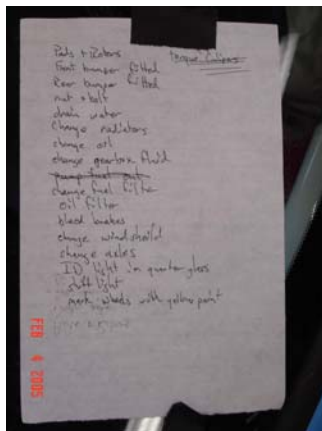 Pads + Rotors
Torque Calipers
Front bumper fitted
Rear bumper fitted
nut + bolt
drain water
Change radiators
change oil
change gearbox fluid
pump fuel out
change fuel filter
oil filter
bleed brakes
change windsheild
change axles
ID light in quarter glass
shift light
mark wheels with yellow paint
FEB 4 2005